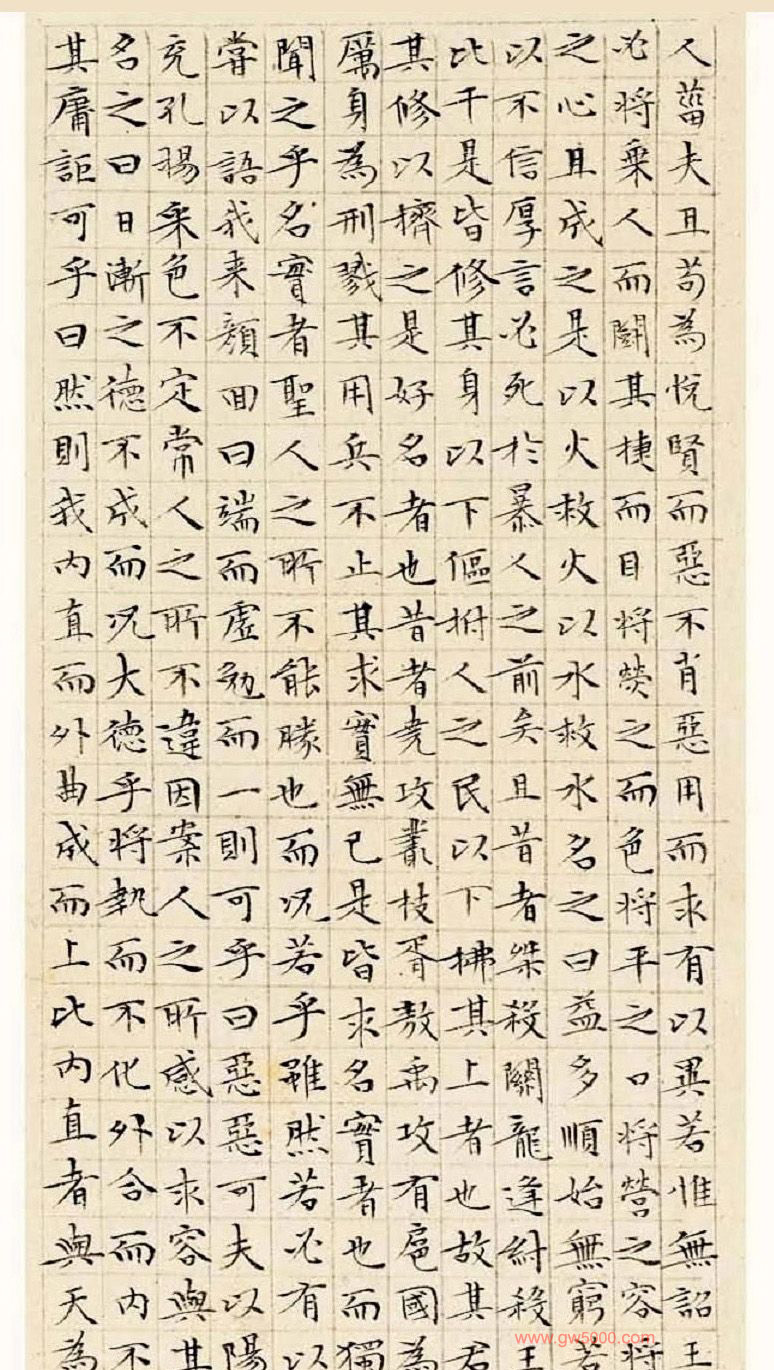 人菑夫且苟為悅賢而惡不肖惡用而求有以異若惟無詔王
必將乘人而鬭其捷而目將熒之而色將平之口將營之容將
之心且成之是以火救火以水救水名之曰益多順始無窮若
以不信厚言必死於暴人之前矣且昔者桀殺關龍逢紂殺王
比干是皆修其身以下傴拊人之民以下拂其上者也故其君
其修以擠之是好名者也昔者堯攻叢枝胥敖禹攻有扈國為
厲身為刑戮其用兵不止其求實無已是皆求名實者也而獨
聞之乎名實者聖人之所不能勝也而況若乎雖然若必有以
嘗以語我来顏回曰端而虛勉而一則可乎曰惡惡可夫以陽
充孔揚采色不定常人之所不違因案人之所感以求容與其
名之曰日漸之德不成而況大德乎將執而不化外合而內不
其庸詎可乎曰然則我內直而外曲成而上比內直者與天為
www.gw5000.com